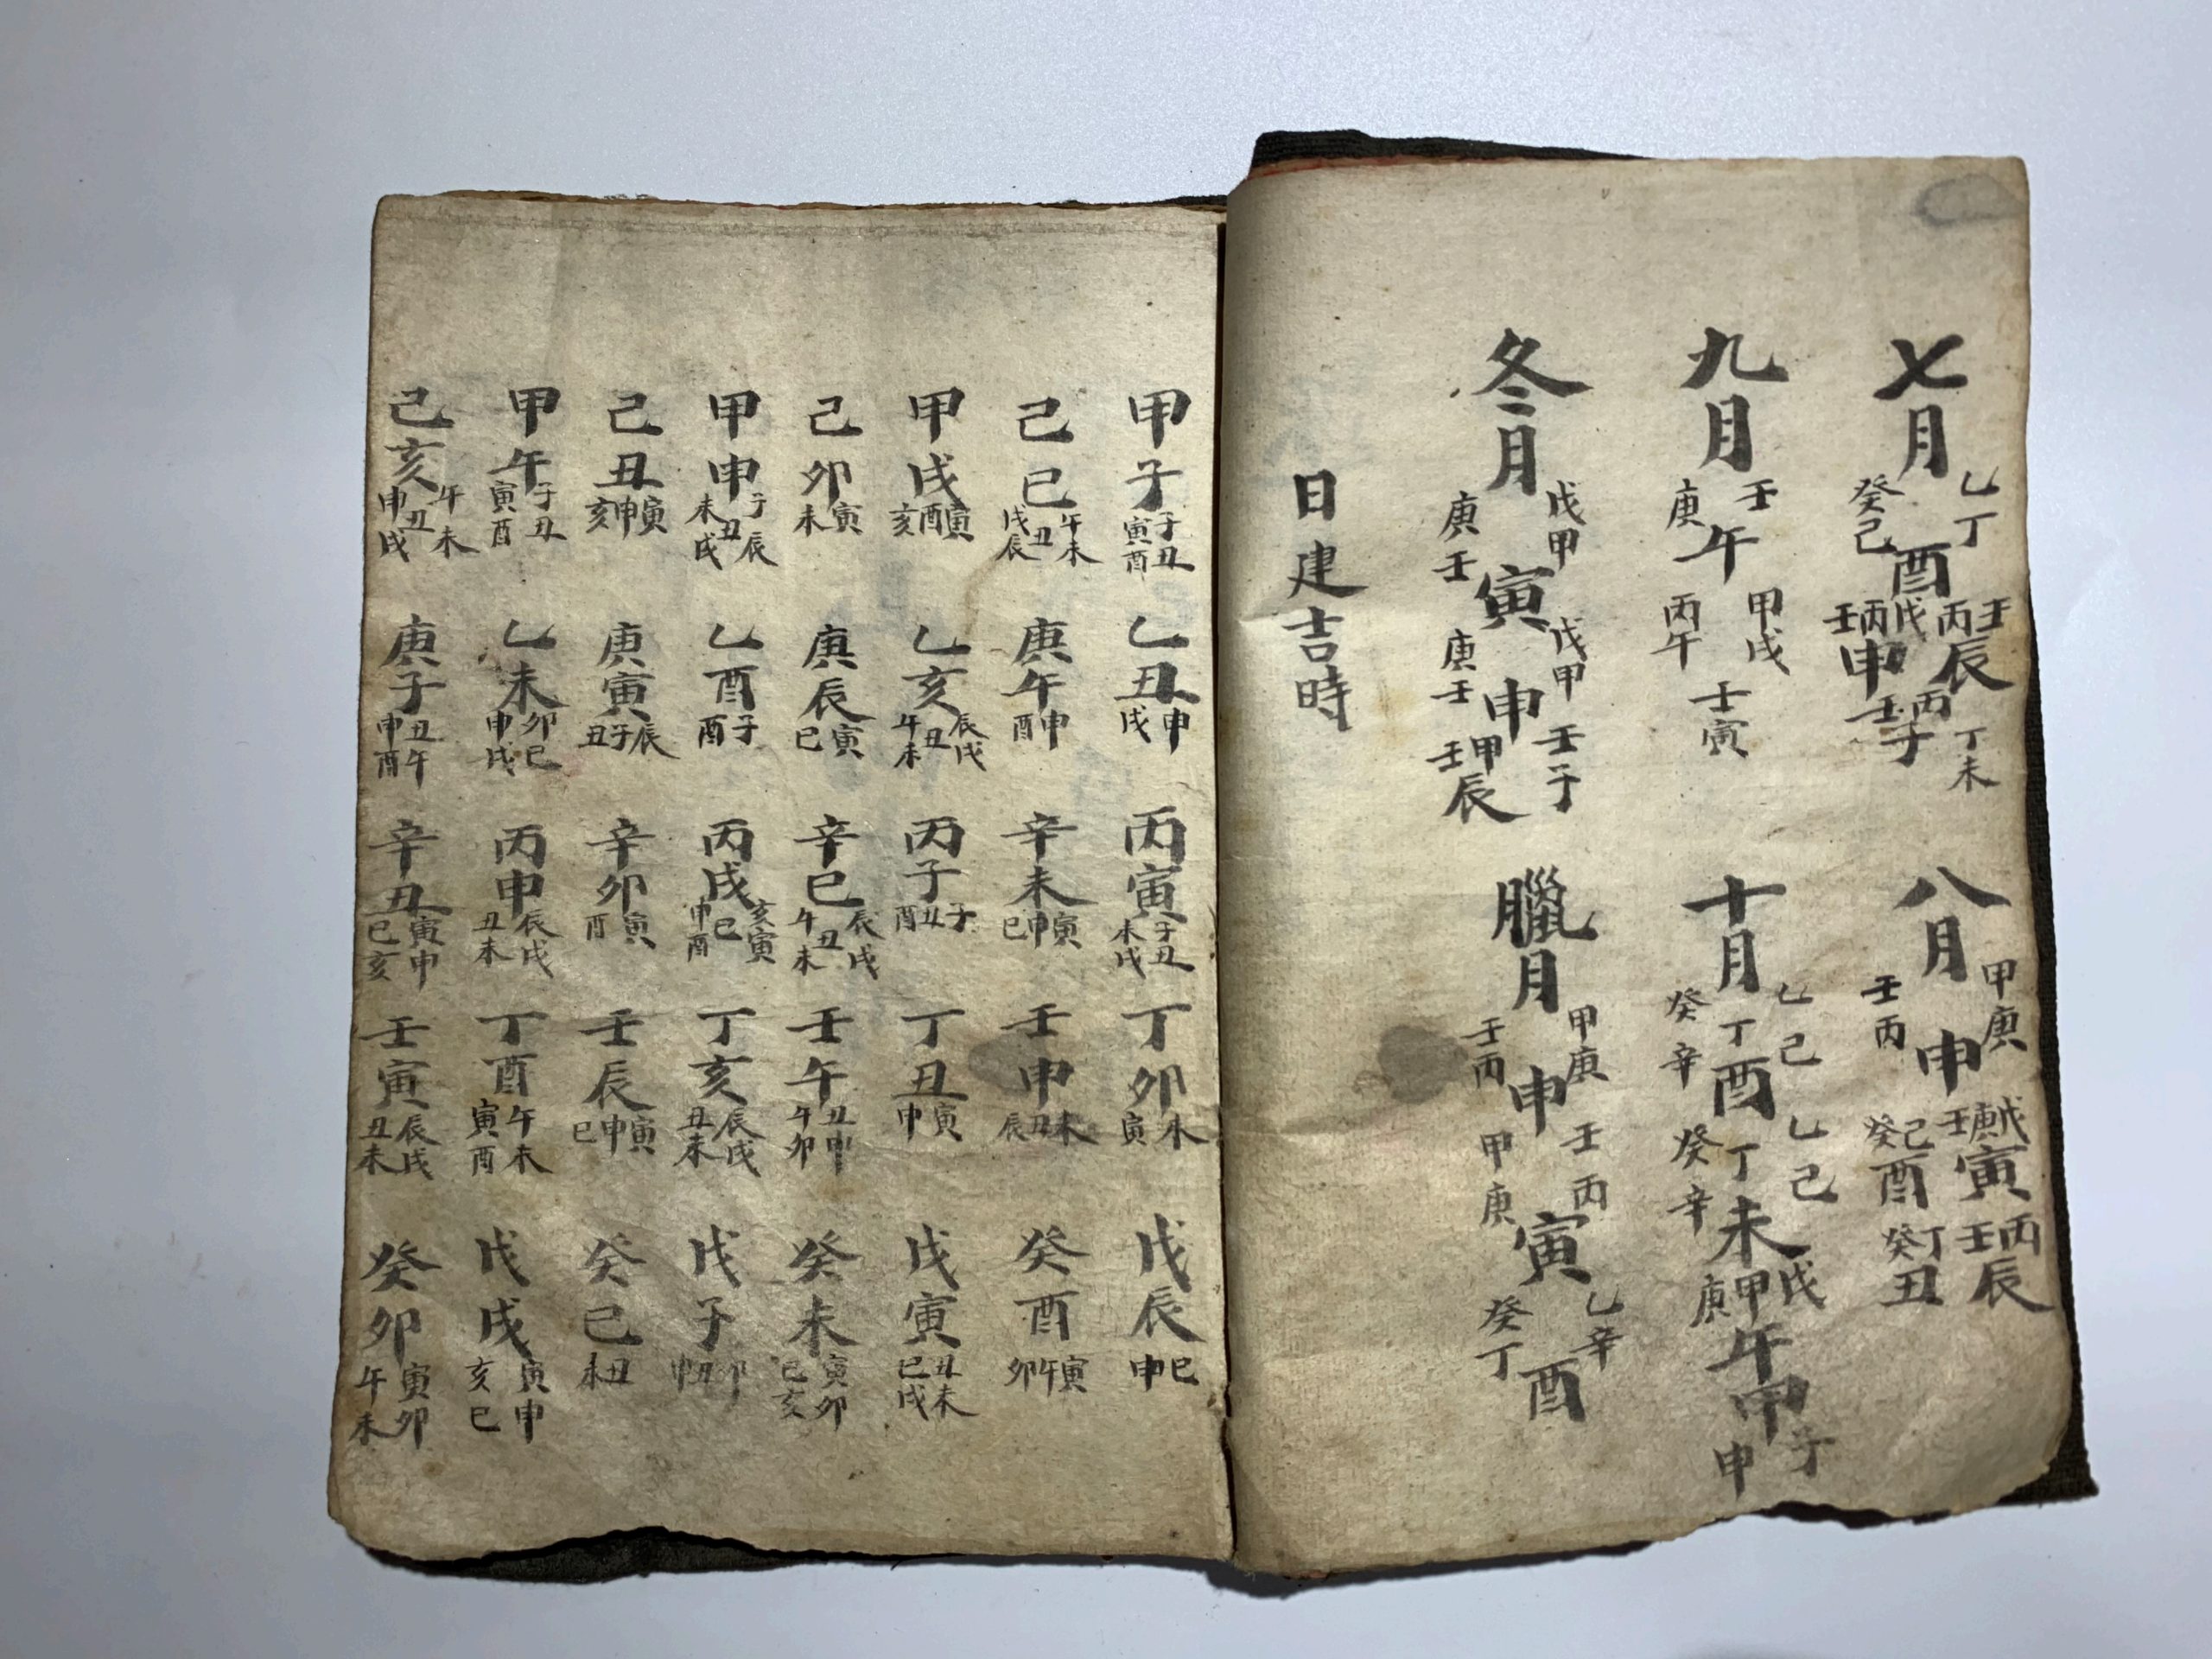 七月乙丁癸己酉壬丙辰戊丙壬申丙壬子丁未八月甲庚壬丙申戊庚壬寅己癸酉丙壬辰丁癸丑
九月壬庚午甲戌丙午壬寅十月乙己丁癸辛酉乙己丁癸辛未戊甲庚午甲子申
冬月戊甲庚壬寅戊甲庚壬申壬子甲壬辰臘月甲庚壬丙申壬丙甲庚寅乙辛癸丁酉
日建吉時
甲子子丑寅酉乙丑申戌丙寅子丑未戌丁卯未寅戊辰巳申
己巳午未丑戌辰庚午申酉辛未寅申巳壬申未丑辰癸酉寅午卯
甲戌寅酉亥乙亥辰戌丑午未丙子子丑酉丁丑寅申戊寅丑未巳戌
己卯寅未庚辰寅巳辛巳辰戌丑午未壬午丑申午卯癸未寅卯巳亥
甲申子辰丑未戌乙酉子酉丙戌亥寅巳申酉丁亥辰戌丑未戊子卯丑申
己丑寅申亥庚寅辰子丑辛卯寅酉壬辰寅申巳癸巳丑未
甲午子丑寅酉乙未卯巳申戌丙申辰戌丑未丁酉午未寅酉戊戌寅申亥巳
己亥午未丑申戌庚子丑午申酉辛丑寅申巳亥壬寅辰戌丑未癸卯寅卯午未